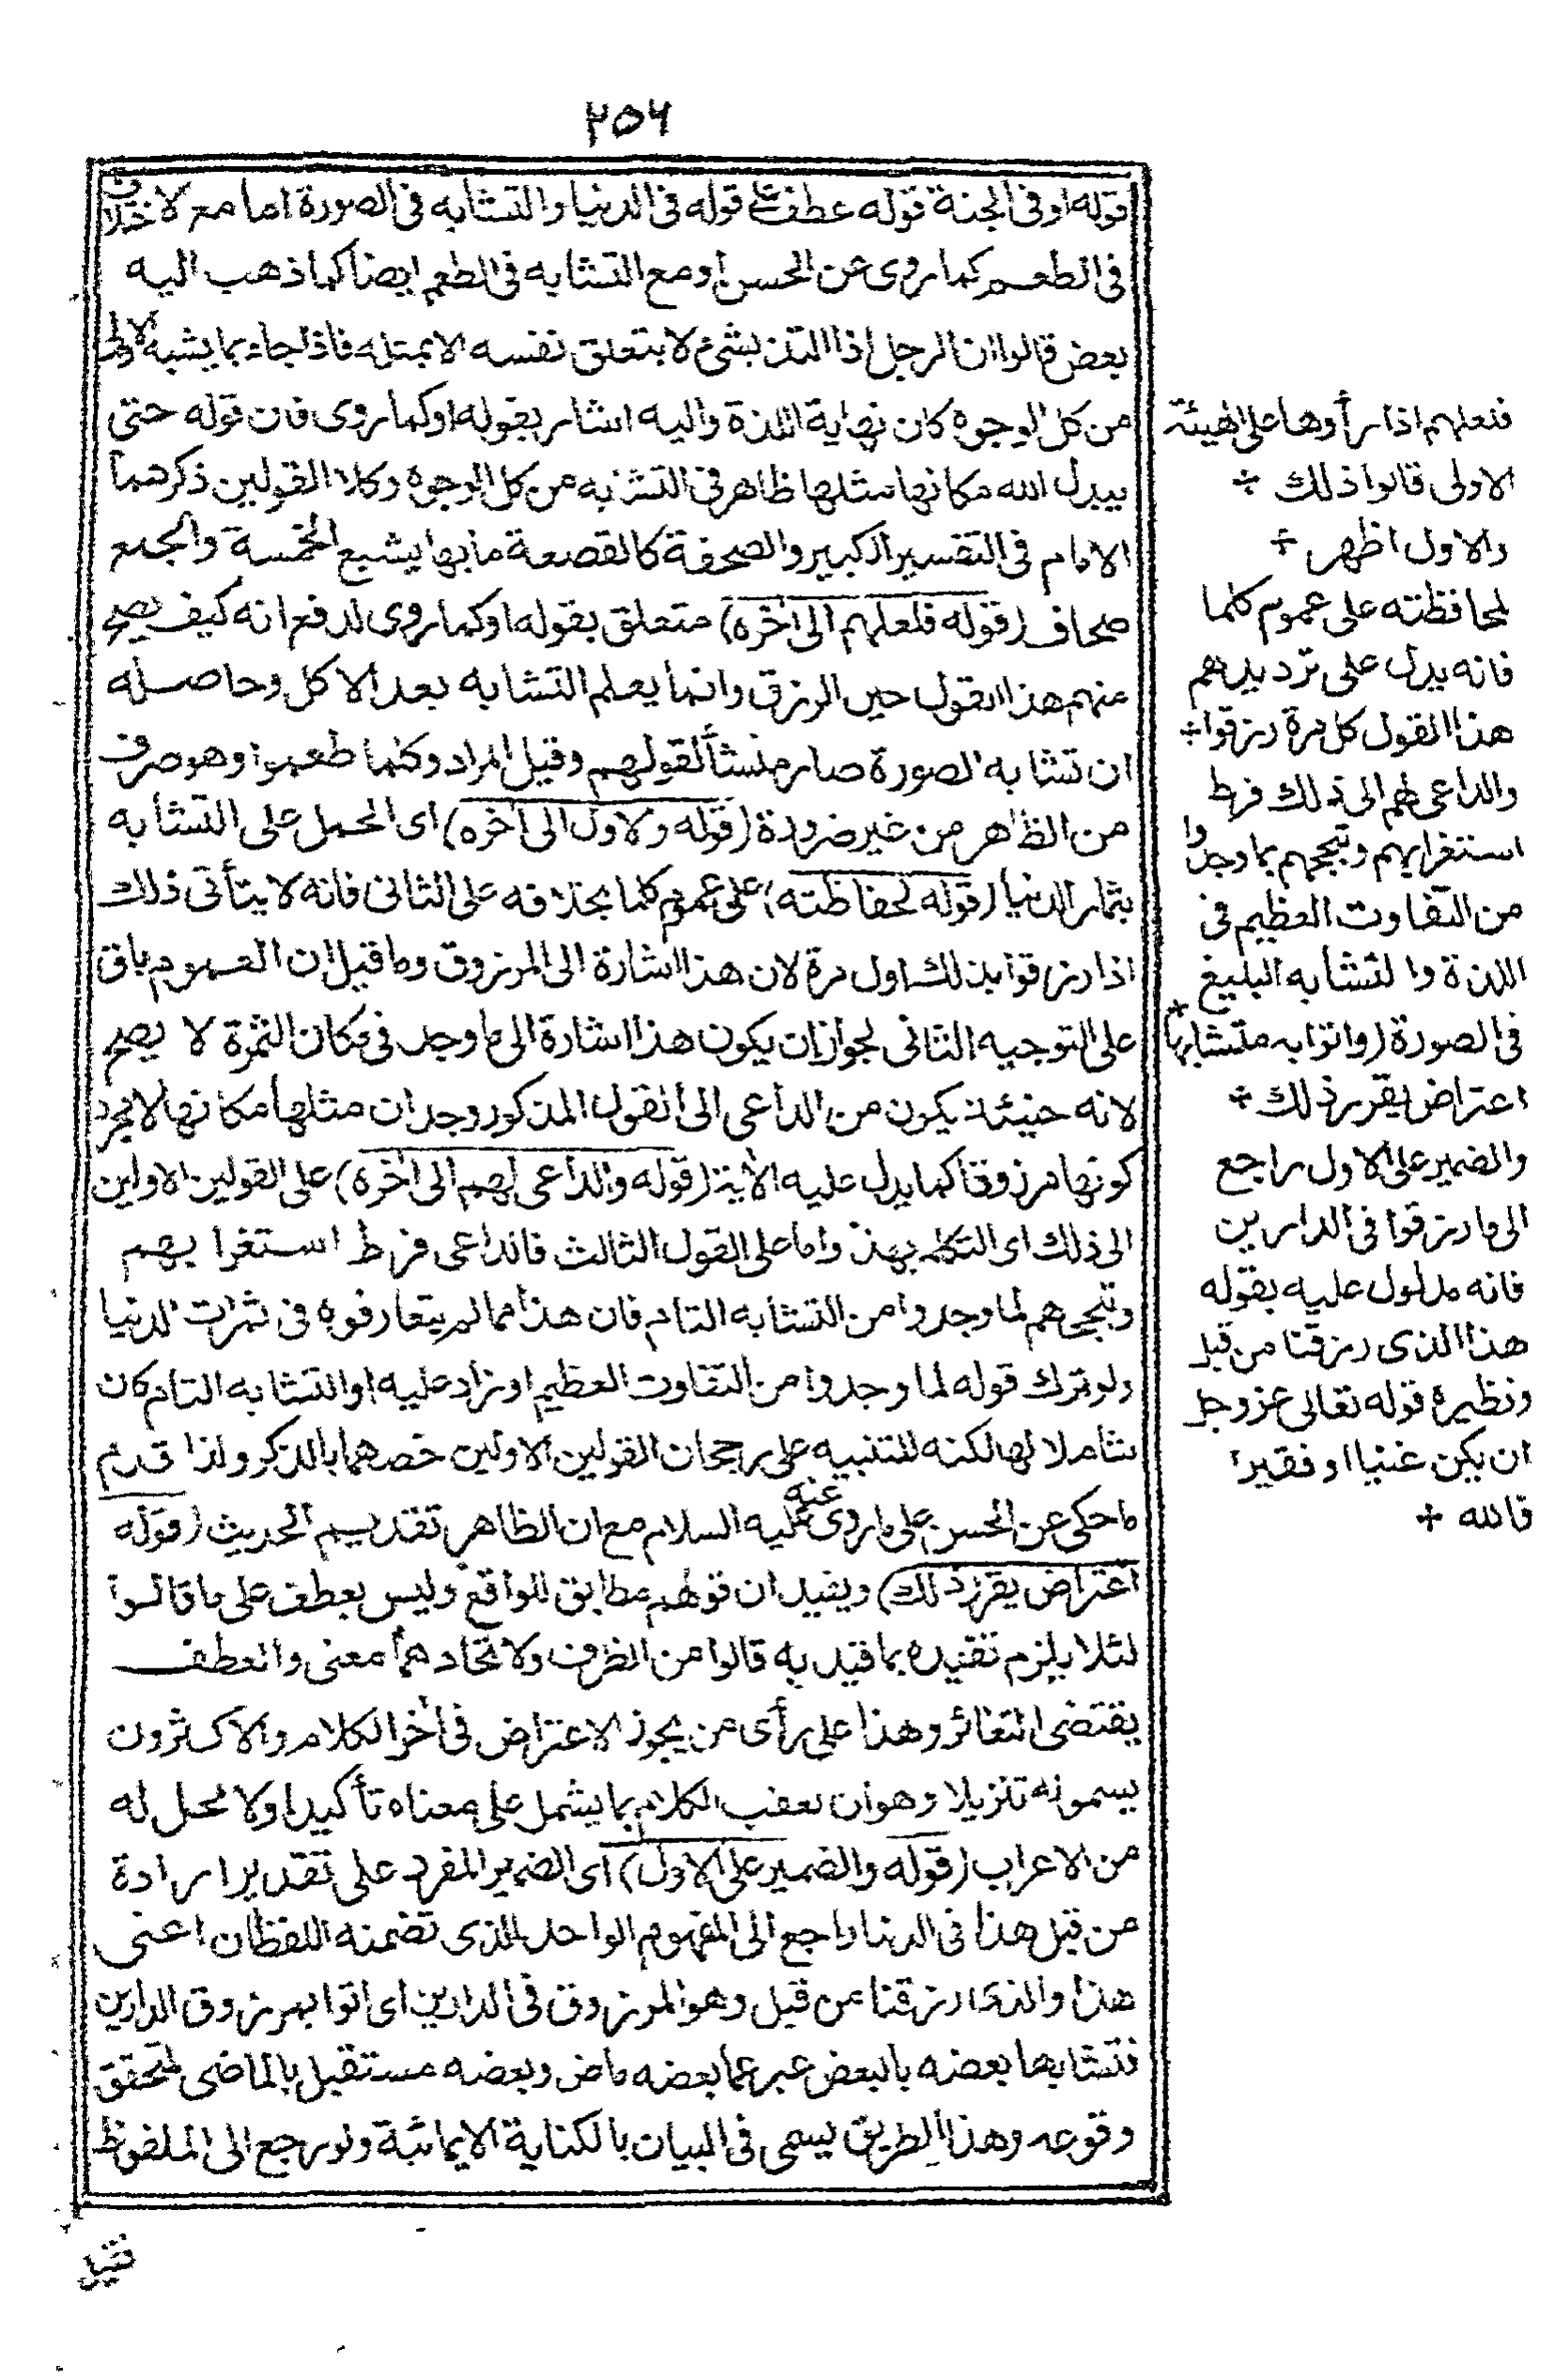 ٢٥٦
قوله او فى الجنة قوله عطف على قوله فى الدنيا والتشابه فى الصورة اما مع لاختلاف
فى الطعم كما روى عن الحسن او مع التشابه فى الطعم ايضا كما ذهب اليه
بعض قالوا ان الرجل اذا التذ بشئ لا يتعلق نفسه الا بمثله فاذا جاء بما يشبه الاول
من كل الوجوه كان نهاية اللذة واليه اشار بقوله او كما روى فان قوله حتى
يبدل الله مكانها مثلها ظاهر فى التشابه من كل الوجوه وكلا القولين ذكرهما
الامام فى التفسير الكبير والصحفة كالقصعة مابها يشبع الخمسة والجمع
صحاف (قوله فلعلهم الى اخره) متعلق بقوله او كما روى لدفع انه كيف يصح
منهم هذا القول حين الرزق وانما يعلم التشابه بعد الاكل وحاصله
ان تشابه الصورة صار منشأ لقولهم وقيل المراد وكلما طعموا وهو صرف
من الظاهر من غير ضرورة (قوله ولاول الى اخره) اى الحمل على التشابه
بثمار الدنيا (قوله لحفاظته) على عموم كلما بخلافه على الثانى فانه لا يتأتى ذلك
اذا رزقوا بذلك اول مرة لان هذا اشارة الى المرزوق وما قيل ان العموم باق
على التوجيه الثانى لجواز ان يكون هذا اشارة الى ما وجد فى مكان الثمرة لا يصح
لانه حينئذ يكون من الداعى الى القول المذكور وجدان مثلها مكانها لا مجرد
كونها مرزوقا كما يدل عليه الأية (قوله والداعى لهم الى اخره) على القولين الاولين
الى ذلك اى التكلم بهذا واما على القول الثالث فالداعى فرط استغرابهم
وتبجحهم لما وجدوا من التشابه التام فان هذا مما لم يتعارفوه فى ثمرات الدنيا
ولو ترك قوله لما وجدوا من التفاوت العظيم او زاد عليه او التشابه التام كان
شاملا لها لكنه للتنبيه على رجحان القولين الاولين خصهما بالذكر ولذا قدم
ما حكى عن الحسن على ما روى عنه عليه السلام مع ان الظاهر تقديم الحديث (قوله
اعتراض يقرر ذلك) ويفيد ان قولهم مطابق للواقع وليس بعطف على ما قالوا
لئلا يلزم تقيده بما قيد به قالوا من الظرف ولاتحادهما معنى والعطف
يقتضى التغائر وهذا على رأى من يجوز الاعتراض فى اخر الكلام والاكثرون
يسمونه تنزيلا وهو ان يعقب الكلام بما يشمل على معناه تأكيدا ولا محل له
من الاعراب (قوله والضمير على الاول) اى الضمير المفرد على تقدير ارادة
من قبل هذا فى الدنيا راجع الى المفهوم الواحد الذى تضمنه اللفظان اعنى
هذا والذى رزقنا من قبل وهو المرزوق فى الدارين اى اتوا بمرزوق الدارين
متشابها بعضه بالبعض عبر عما بعضه ماض وبعضه مستقبل بالماضى لتحقق
وقوعه وهذا الطريق يسمى فى البيان بالكناية الايمائية ولو رجع الى الملفوظ
فقيل
فلعلهم اذا رأوها على الهيئة
الاولى قالوا ذلك +
والاول اظهر +
لمحافظته على عموم كلما
فانه يدل على ترديدهم
هذا القول كل مرة رزقوا +
والداعى لهم الى ذلك فرط
استغرابهم وتبجحهم بما وجدوا
من التفاوت العظيم فى
اللذة والتشابه البليغ
فى الصورة (واتوا به متشابها +
اعتراض يقرر ذلك +
والضمير على الاول راجع
الى ما رزقوا فى الدارين
فانه مدلول عليه بقوله
هذا الذى رزقنا من قبل
ونظيره قوله تعالى عز وجل
ان يكن غنيا او فقيرا
فالله +